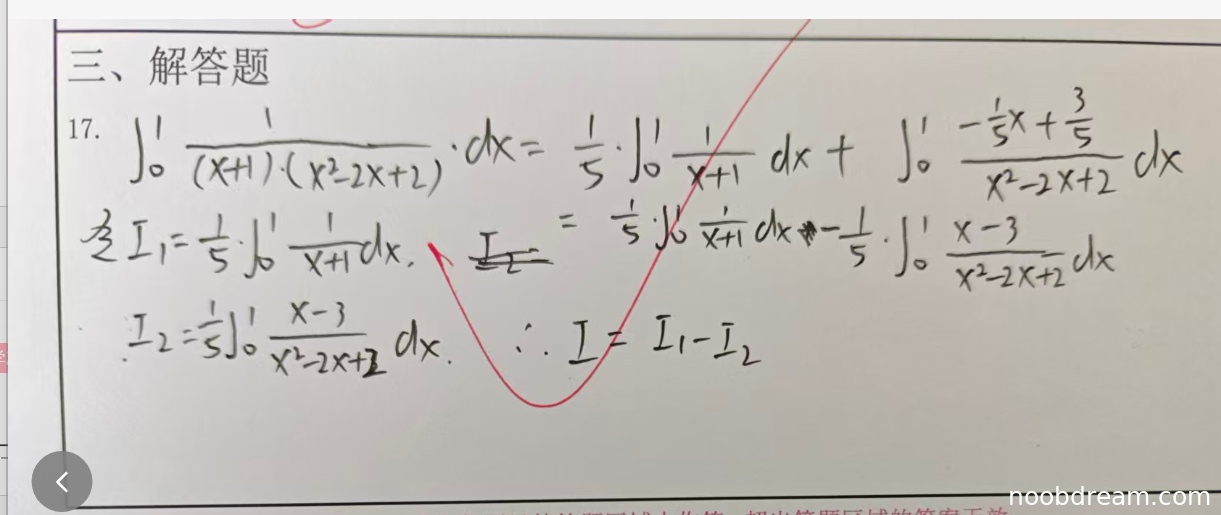 三、解答题
17. ∫₀¹ 1/((x+1)·(x²-2x+2)) ·dx = 1/5 ·∫₀¹ 1/(x+1) dx + ∫₀¹ (-1/5 x + 3/5)/(x²-2x+2) dx
= 1/5 ·∫₀¹ 1/(x+1) dx - 1/5 ·∫₀¹ (x-3)/(x²-2x+2) dx
令 I₁ = 1/5 ·∫₀¹ 1/(x+1) dx.
I₂ = 1/5 ∫₀¹ (x-3)/(x²-2x+2) dx. ∴ I = I₁ - I₂
noobdream.com